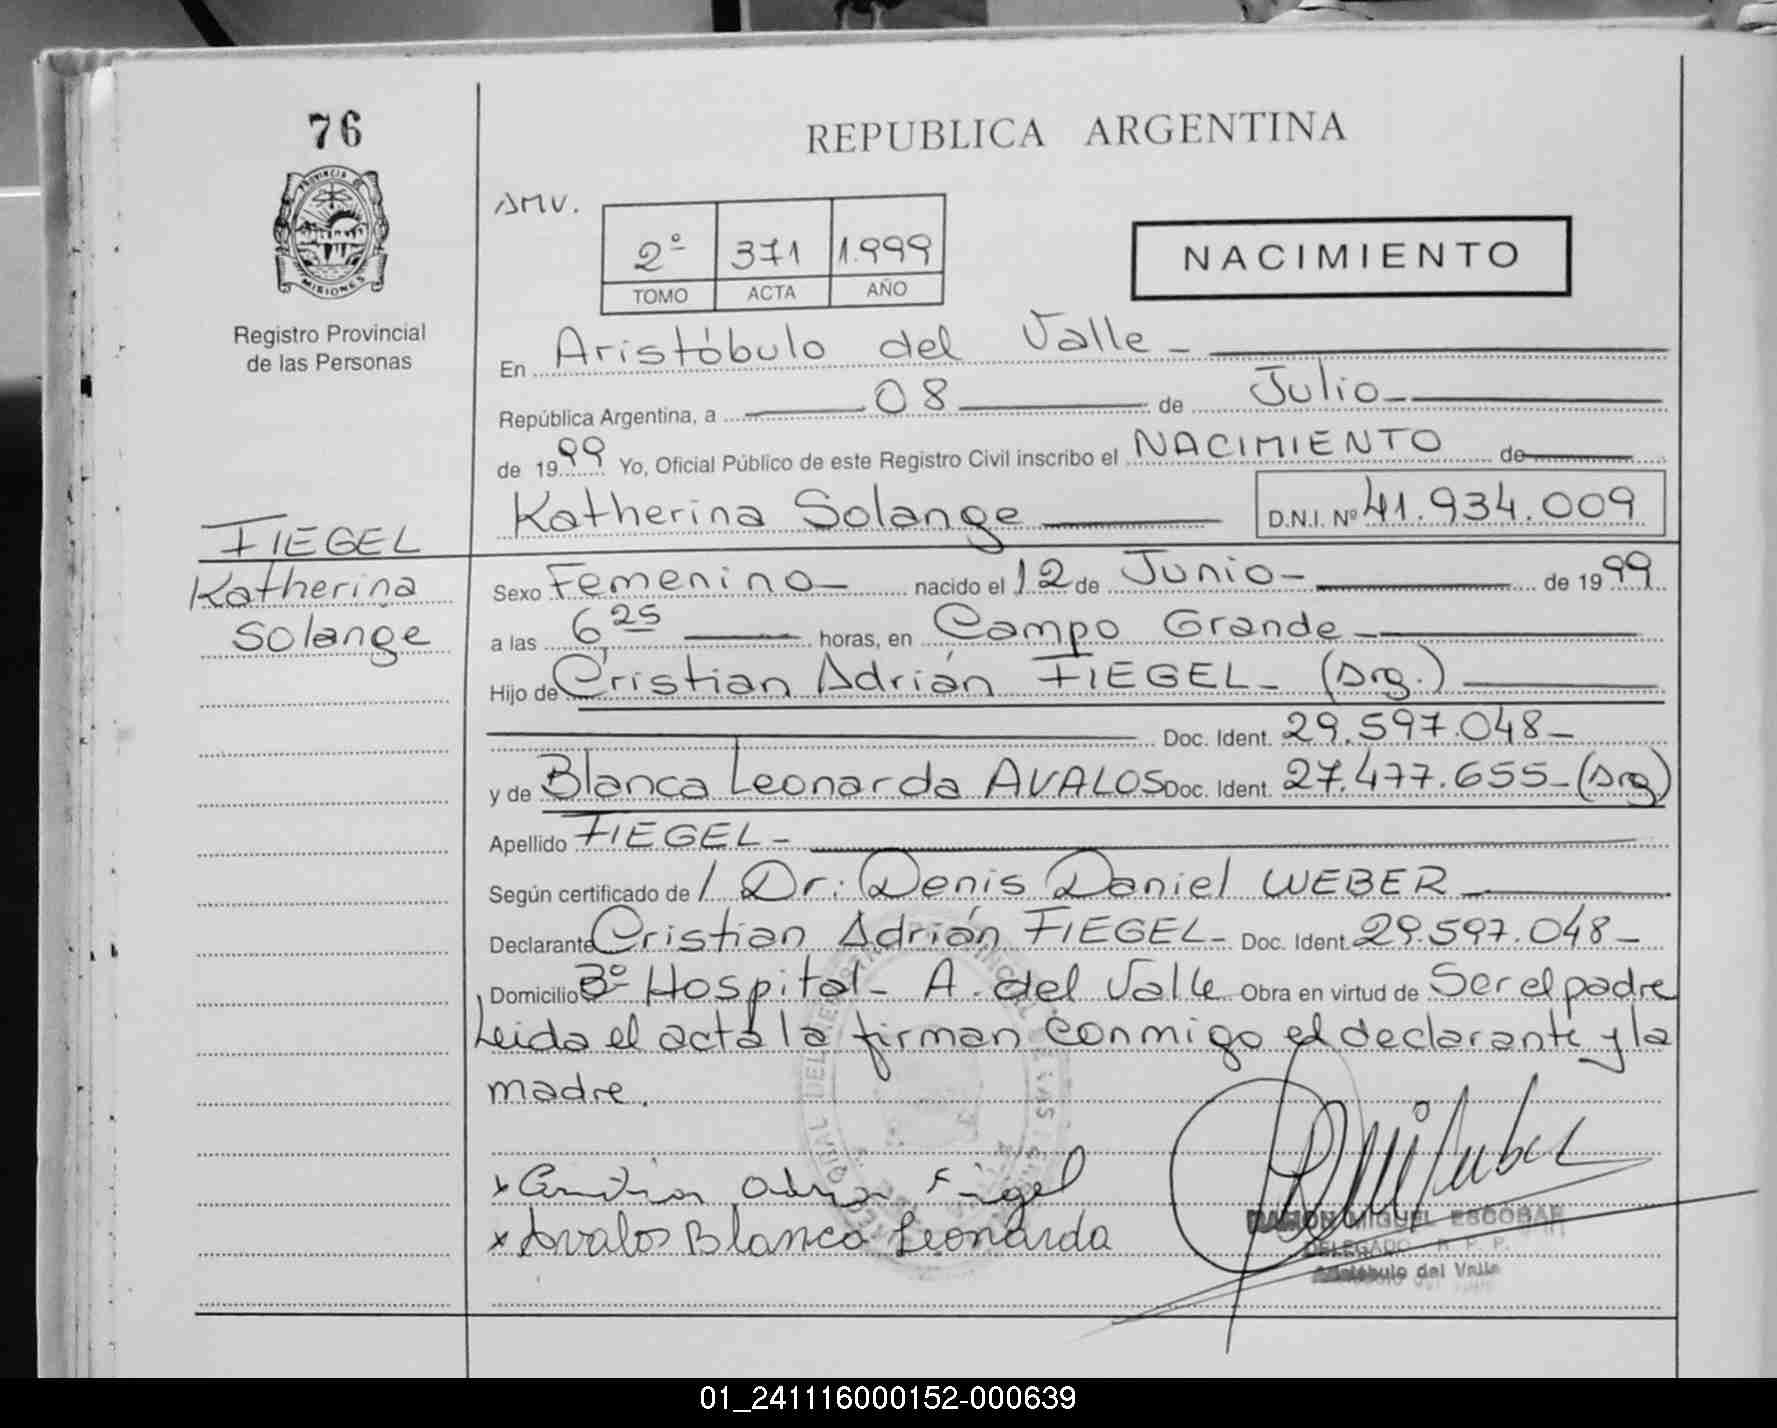 76
PROVINCIA DE
MISIONES
Registro Provincial
de las Personas
FIEGEL
Katherina
Solange
REPUBLICA ARGENTINA
AMV.
2º 371 1.999
TOMO ACTA AÑO
NACIMIENTO
En Aristóbulo del Valle -
República Argentina, a 08 de Julio -
de 1999 Yo, Oficial Público de este Registro Civil inscribo el NACIMIENTO de
Katherina Solange D.N.I. Nº 41.934.009
Sexo Femenino - nacido el 12 de Junio - de 1999
a las 6,25 horas, en Campo Grande -
Hijo de Cristian Adrián FIEGEL - (Arg.)
Doc. Ident. 29.597.048 -
y de Blanca Leonarda AVALOS Doc. Ident. 27.477.655 - (Arg)
Apellido FIEGEL -
Según certificado de / Dr: Denis Daniel WEBER -
Declarante Cristian Adrián FIEGEL - Doc. Ident. 29.597.048 -
Domicilio Bº Hospital - A. del Valle Obra en virtud de Ser el padre
Leida el acta la firman conmigo el declarante y la
madre.
x Cristian Adrian Fiegel
x Avalos Blanca Leonarda
RAMON MIGUEL ESCOBAR
DELEGADO R. P. P.
Aristóbulo del Valle
01_241116000152-000639